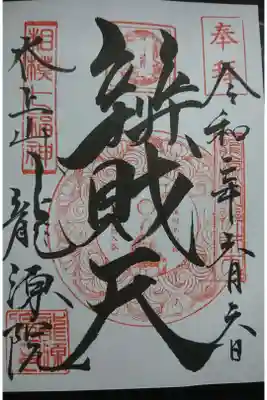 奉拝
令和二年六月六日
辨財天
相模七福神
水上山
龍源院